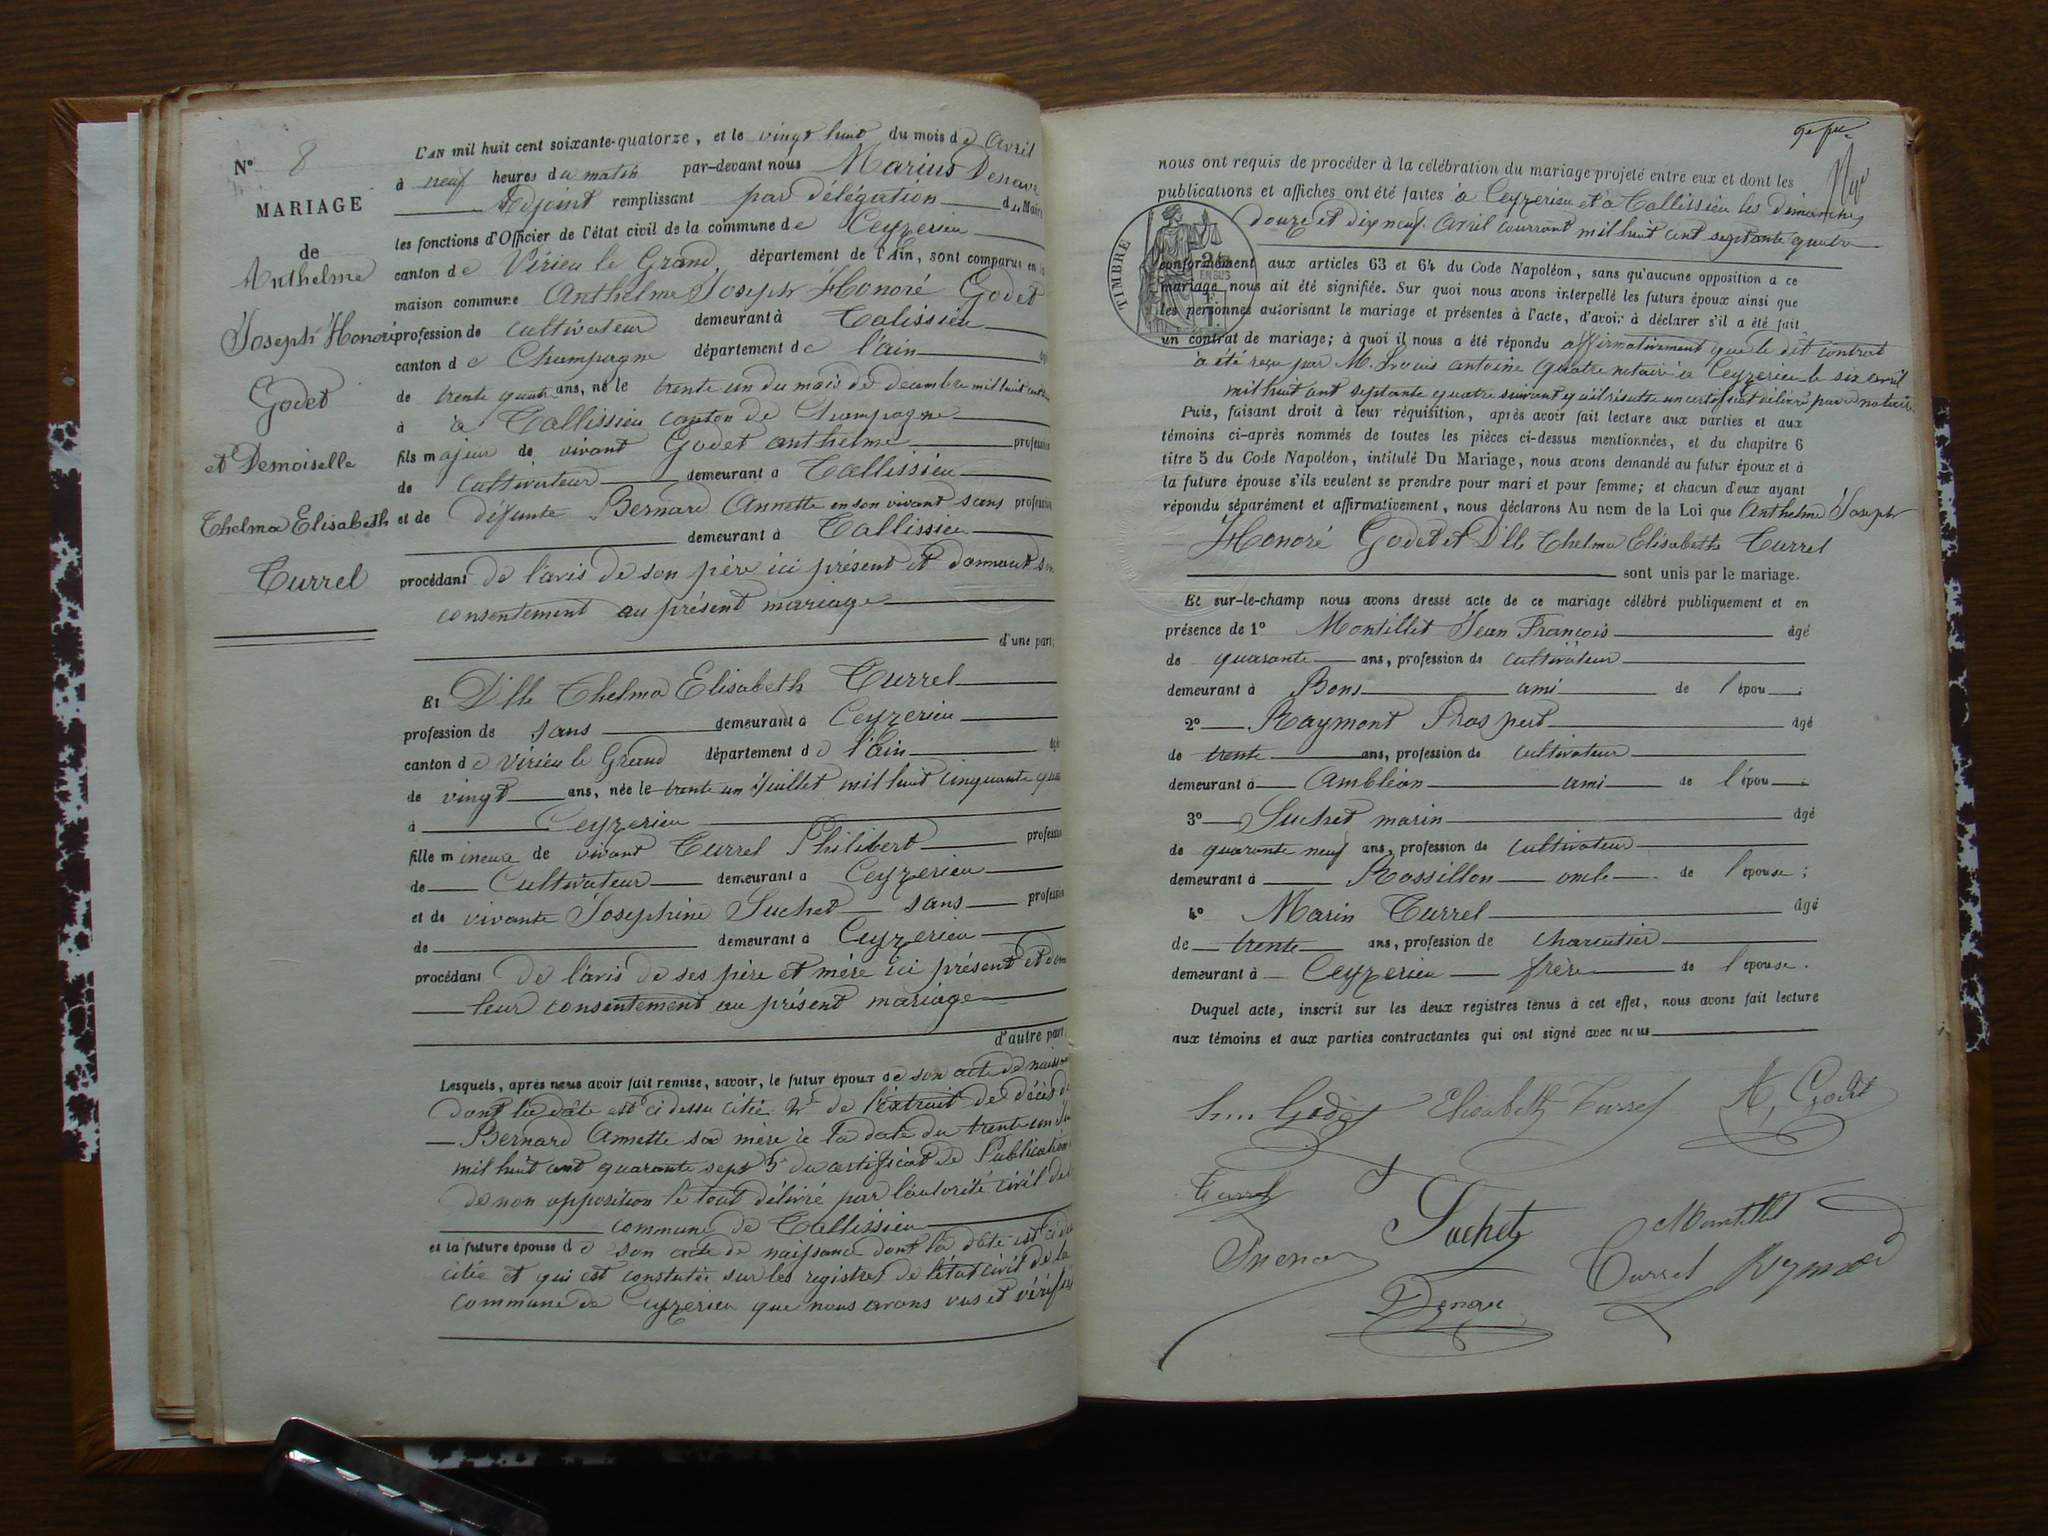 N° 8
MARIAGE
de
Anthelme
Joseph Honoré
Godet
et Demoiselle
Thelma Elisabeth
Turrel
L'AN mil huit cent soixante-quatorze, et le vingt huit du mois de Avril
à neuf heures du matin par-devant nous Marius Denave
Adjoint remplissant par délégation du Maire
les fonctions d'Officier de l'état civil de la commune de Ceyzerieu
canton de Virieu le Grand département de l'Ain, sont comparus en la
maison commune Anthelme Joseph Honoré Godet
profession de cultivateur demeurant à Talissieu
canton de Champagne département de l'ain
de trente quatre ans, né le trente un du mois de decembre mil huit cent
à à Tallissieu canton de Champagne
fils majeur de vivant Godet anthelme profession
de cultivateur demeurant à Tallissieu
et de défunte Bernard Annette en son vivant sans profession
demeurant à Tallissieu
procédant de l'avis de son père ici présent et donnant son
consentement au présent mariage
d'une part;
Et Dlle Thelma Elisabeth Turrel
profession de sans demeurant à Ceyzerieu
canton de Virieu le Grand département de l'Ain âgé
de vingt ans, née le trente un Juillet mil huit cinquante
à Ceyzerieu
fille mineure de vivant Turrel Philibert profession
de Cultivateur demeurant à Ceyzerieu
et de vivante Josephine Suchet sans profession
de demeurant à Ceyzerieu
procédant de l'avis de ses père et mère ici présent et
leur consentement au présent mariage
d'autre part.
Lesquels, après nous avoir fait remise, savoir, le futur époux de son acte de
dont la date est ci dessu citée 2° de l'extrait de décès de
Bernard Annette sa mère à la date du trente un
mil huit cent quarante sept 3° du certificat de Publication
de non opposition le tout délivré par l'autorité civil de
commune de Tallissieu
et la future épouse de son acte de naissance dont la date est ci
citée et qui est constatée sur les registres de l'état civil de la
commune de Ceyzerieu que nous avons vus et vérifiés
nous ont requis de procéder à la célébration du mariage projeté entre eux et dont les
publications et affiches ont été faites à Ceyzerieu et à Tallissieu les dimanches
douze et dix neuf avril courrant mil huit cent septante quatre
TIMBRE
conformément aux articles 63 et 64 du Code Napoléon, sans qu'aucune opposition à ce
mariage nous ait été signifiée. Sur quoi nous avons interpellé les futurs époux ainsi que
les personnes autorisant le mariage et présentes à l'acte, d'avoir à déclarer s'il a été fait
un contrat de mariage; à quoi il nous a été répondu affirmativement que le dit contrat
à été reçu par M. Louis antoine Quatre notaire à Ceyzerieu le six avril
mil huit cent septante quatre suivant qu'il résulte un certificat délivré par notaire
Puis, faisant droit à leur réquisition, après avoir fait lecture aux parties et aux
témoins ci-après nommés de toutes les pièces ci-dessus mentionnées, et du chapitre 6
titre 5 du Code Napoléon, intitulé Du Mariage, nous avons demandé au futur époux et à
la future épouse s'ils veulent se prendre pour mari et pour femme; et chacun d'eux ayant
répondu séparément et affirmativement, nous déclarons Au nom de la Loi que Anthelme Joseph
Honoré Godet et Dlle Thelma Elisabeth Turrel
sont unis par le mariage.
Et sur-le-champ nous avons dressé acte de ce mariage célébré publiquement et en
présence de 1° Montillet Jean François âgé
de quarante ans, profession de cultivateur
demeurant à Bons ami de l'épou
2° Raymont Prosper âgé
de trente ans, profession de cultivateur
demeurant à Ambléon ami de l'épou
3° Suchet marin âgé
de quarante neuf ans, profession de cultivateur
demeurant à Rossillon oncle de l'épouse;
4° Marin Turrel âgé
de trente ans, profession de charcutier
demeurant à Ceyzerieu frère de l'épouse.
Duquel acte, inscrit sur les deux registres tenus à cet effet, nous avons fait lecture
aux témoins et aux parties contractantes qui ont signé avec nous
Godet Elisabeth Turrel A, Godet
Turrel
Suchet Montillet
Turrel
Denave